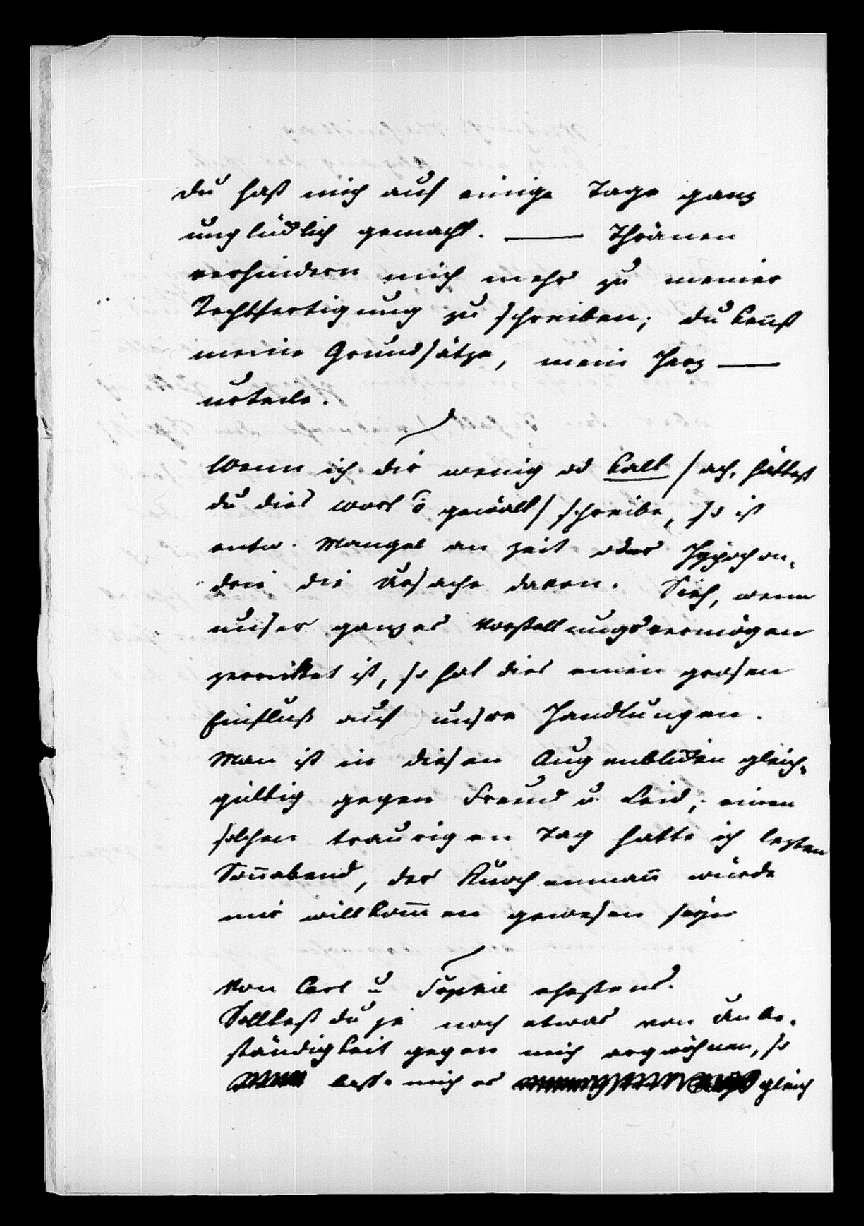 du hast mich auf einige Tage ganz
unglüklich gemacht. — Thränen
verhindern mich mehr zu meiner
Rechtfertigung zu schreiben; du kenst
meine Grundsätze, mein Herz —
urteile.
Wenn ich dir wenig od kalt / ach, hättest
du dies wort ö gewält / schreibe, so ist
entw. Mangel an zeit oder Hypochon-
drie die Ursache davon. Sieh, wenn
unser ganzes Vorstellungsvermögen
zerrüttet ist, so hat dies einen grosen
Einfluß auf unsre Handlungen.
Man ist in diesen Augenbliken gleich-
gültig gegen Freud u Leid; einen
solchen traurigen Tag hatte ich lezten
Soñabend, der Knochenmañ würde
mir willkom̄en gewesen seyn
Von Carl u Sophie ehestens.
Solltest du je noch etwas von Unbe-
ständigkeit gegen mich argwöhnen, so
mich es gleich